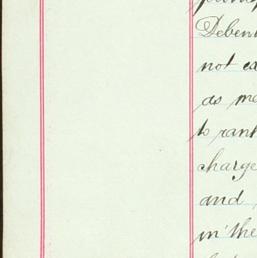 Deben
not ex
as mo
to rank
charge
and
in the